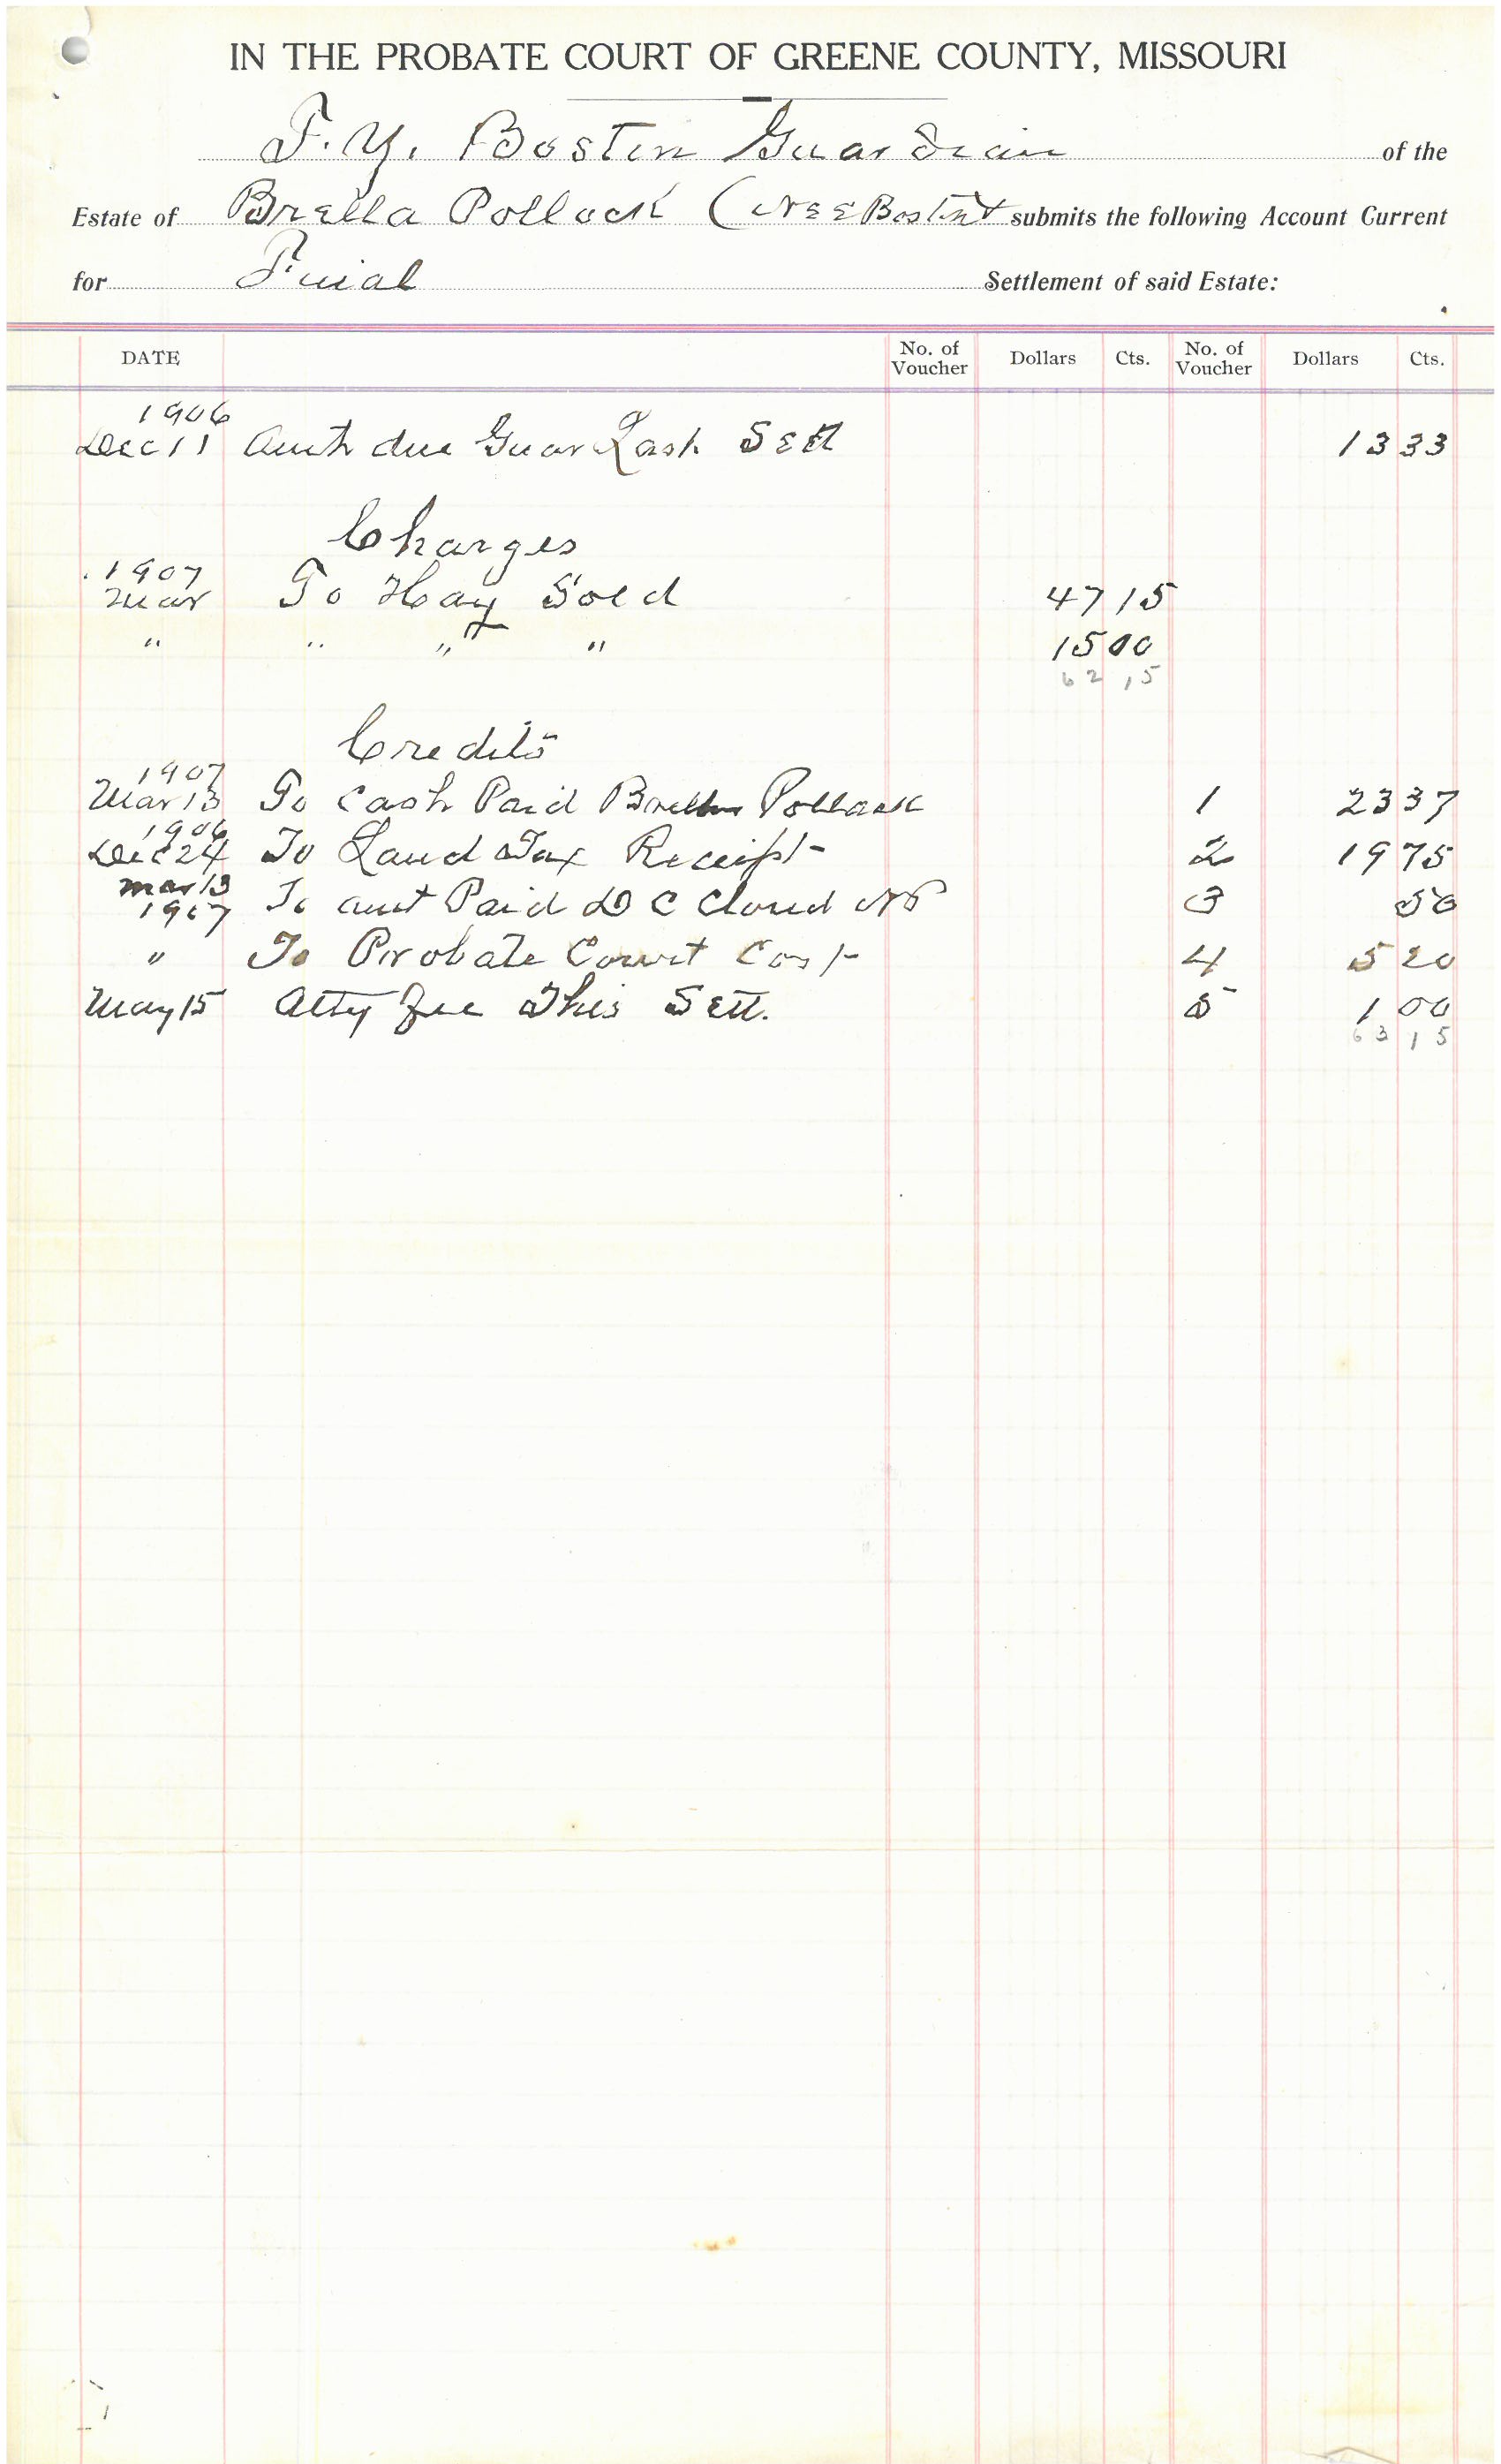 IN THE PROBATE COURT OF GREENE COUNTY, MISSOURI
F. Y. Boston Guardian of the
Estate of Brella Pollock (NEE Boston submits the following Account Current
for Final Settlement of said Estate:
DATE No. of Voucher Dollars Cts. No. of Voucher Dollars Cts.
1906
Dec 11 Amt due Guar Last Sett 13 33
Charges
1907
Mar To Hay Sold 47 15
" " " " 15 00
62 15
Credits
1907
Mar 13 To Cash Paid Brella Pollock 1 23 37
1906
Dec 24 To Land Tax Receipt 2 19 75
Mar 13
1907 To amt Paid D C Cloud NP 3 50
" To Probate Court Cost 4 5 20
May 15 Atty fee This Sett. 5 1 00
63 15